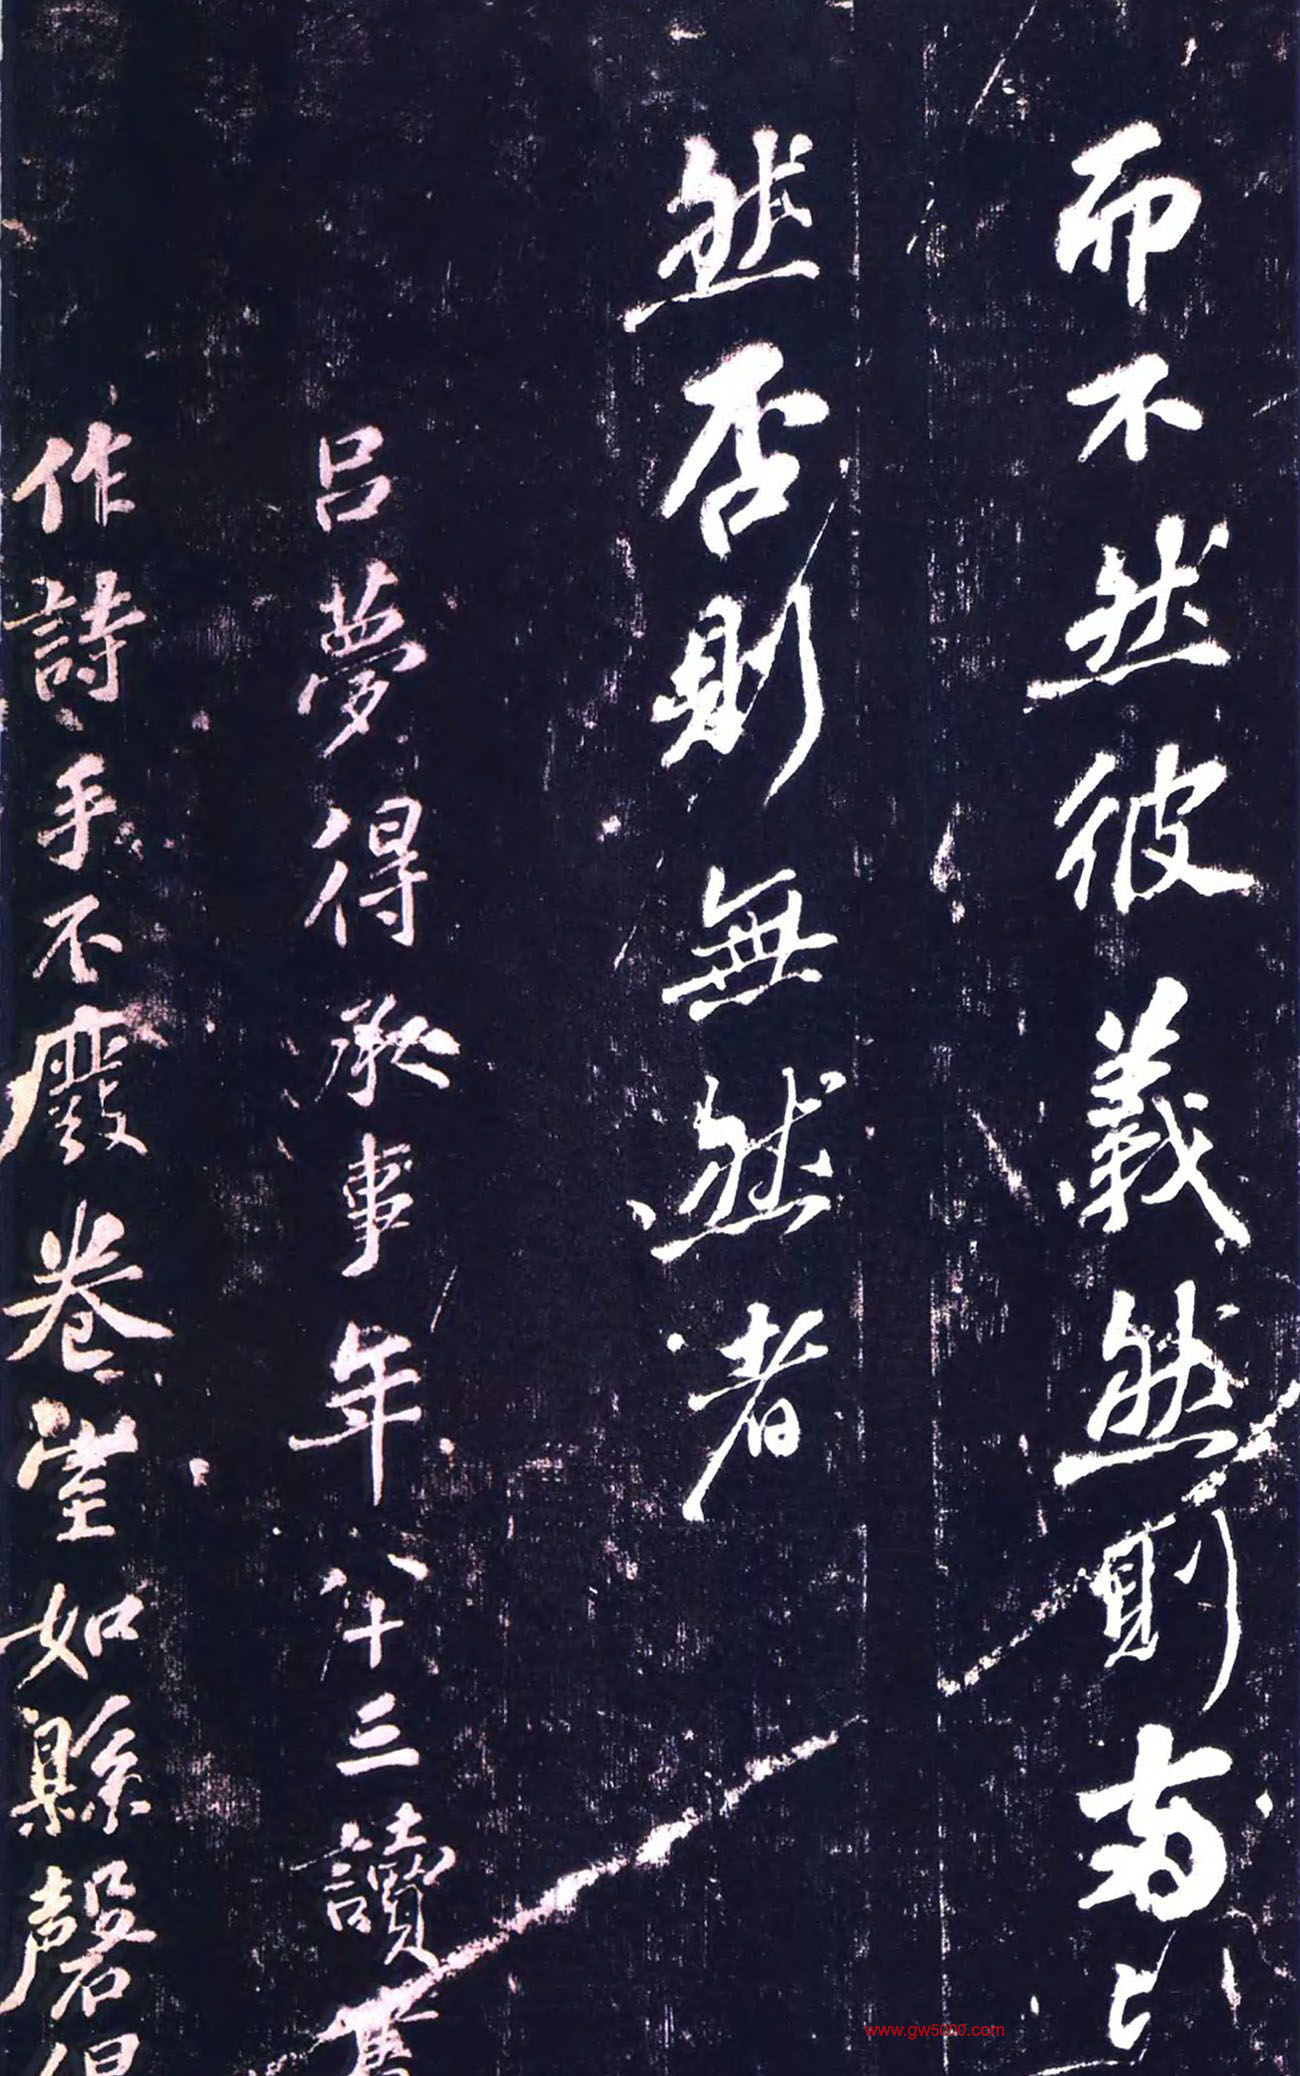 而不然彼義然則南
然否則無然者
呂夢得承事年八十三讀書
作詩手不廢卷室如縣磬
www.gw5000.com